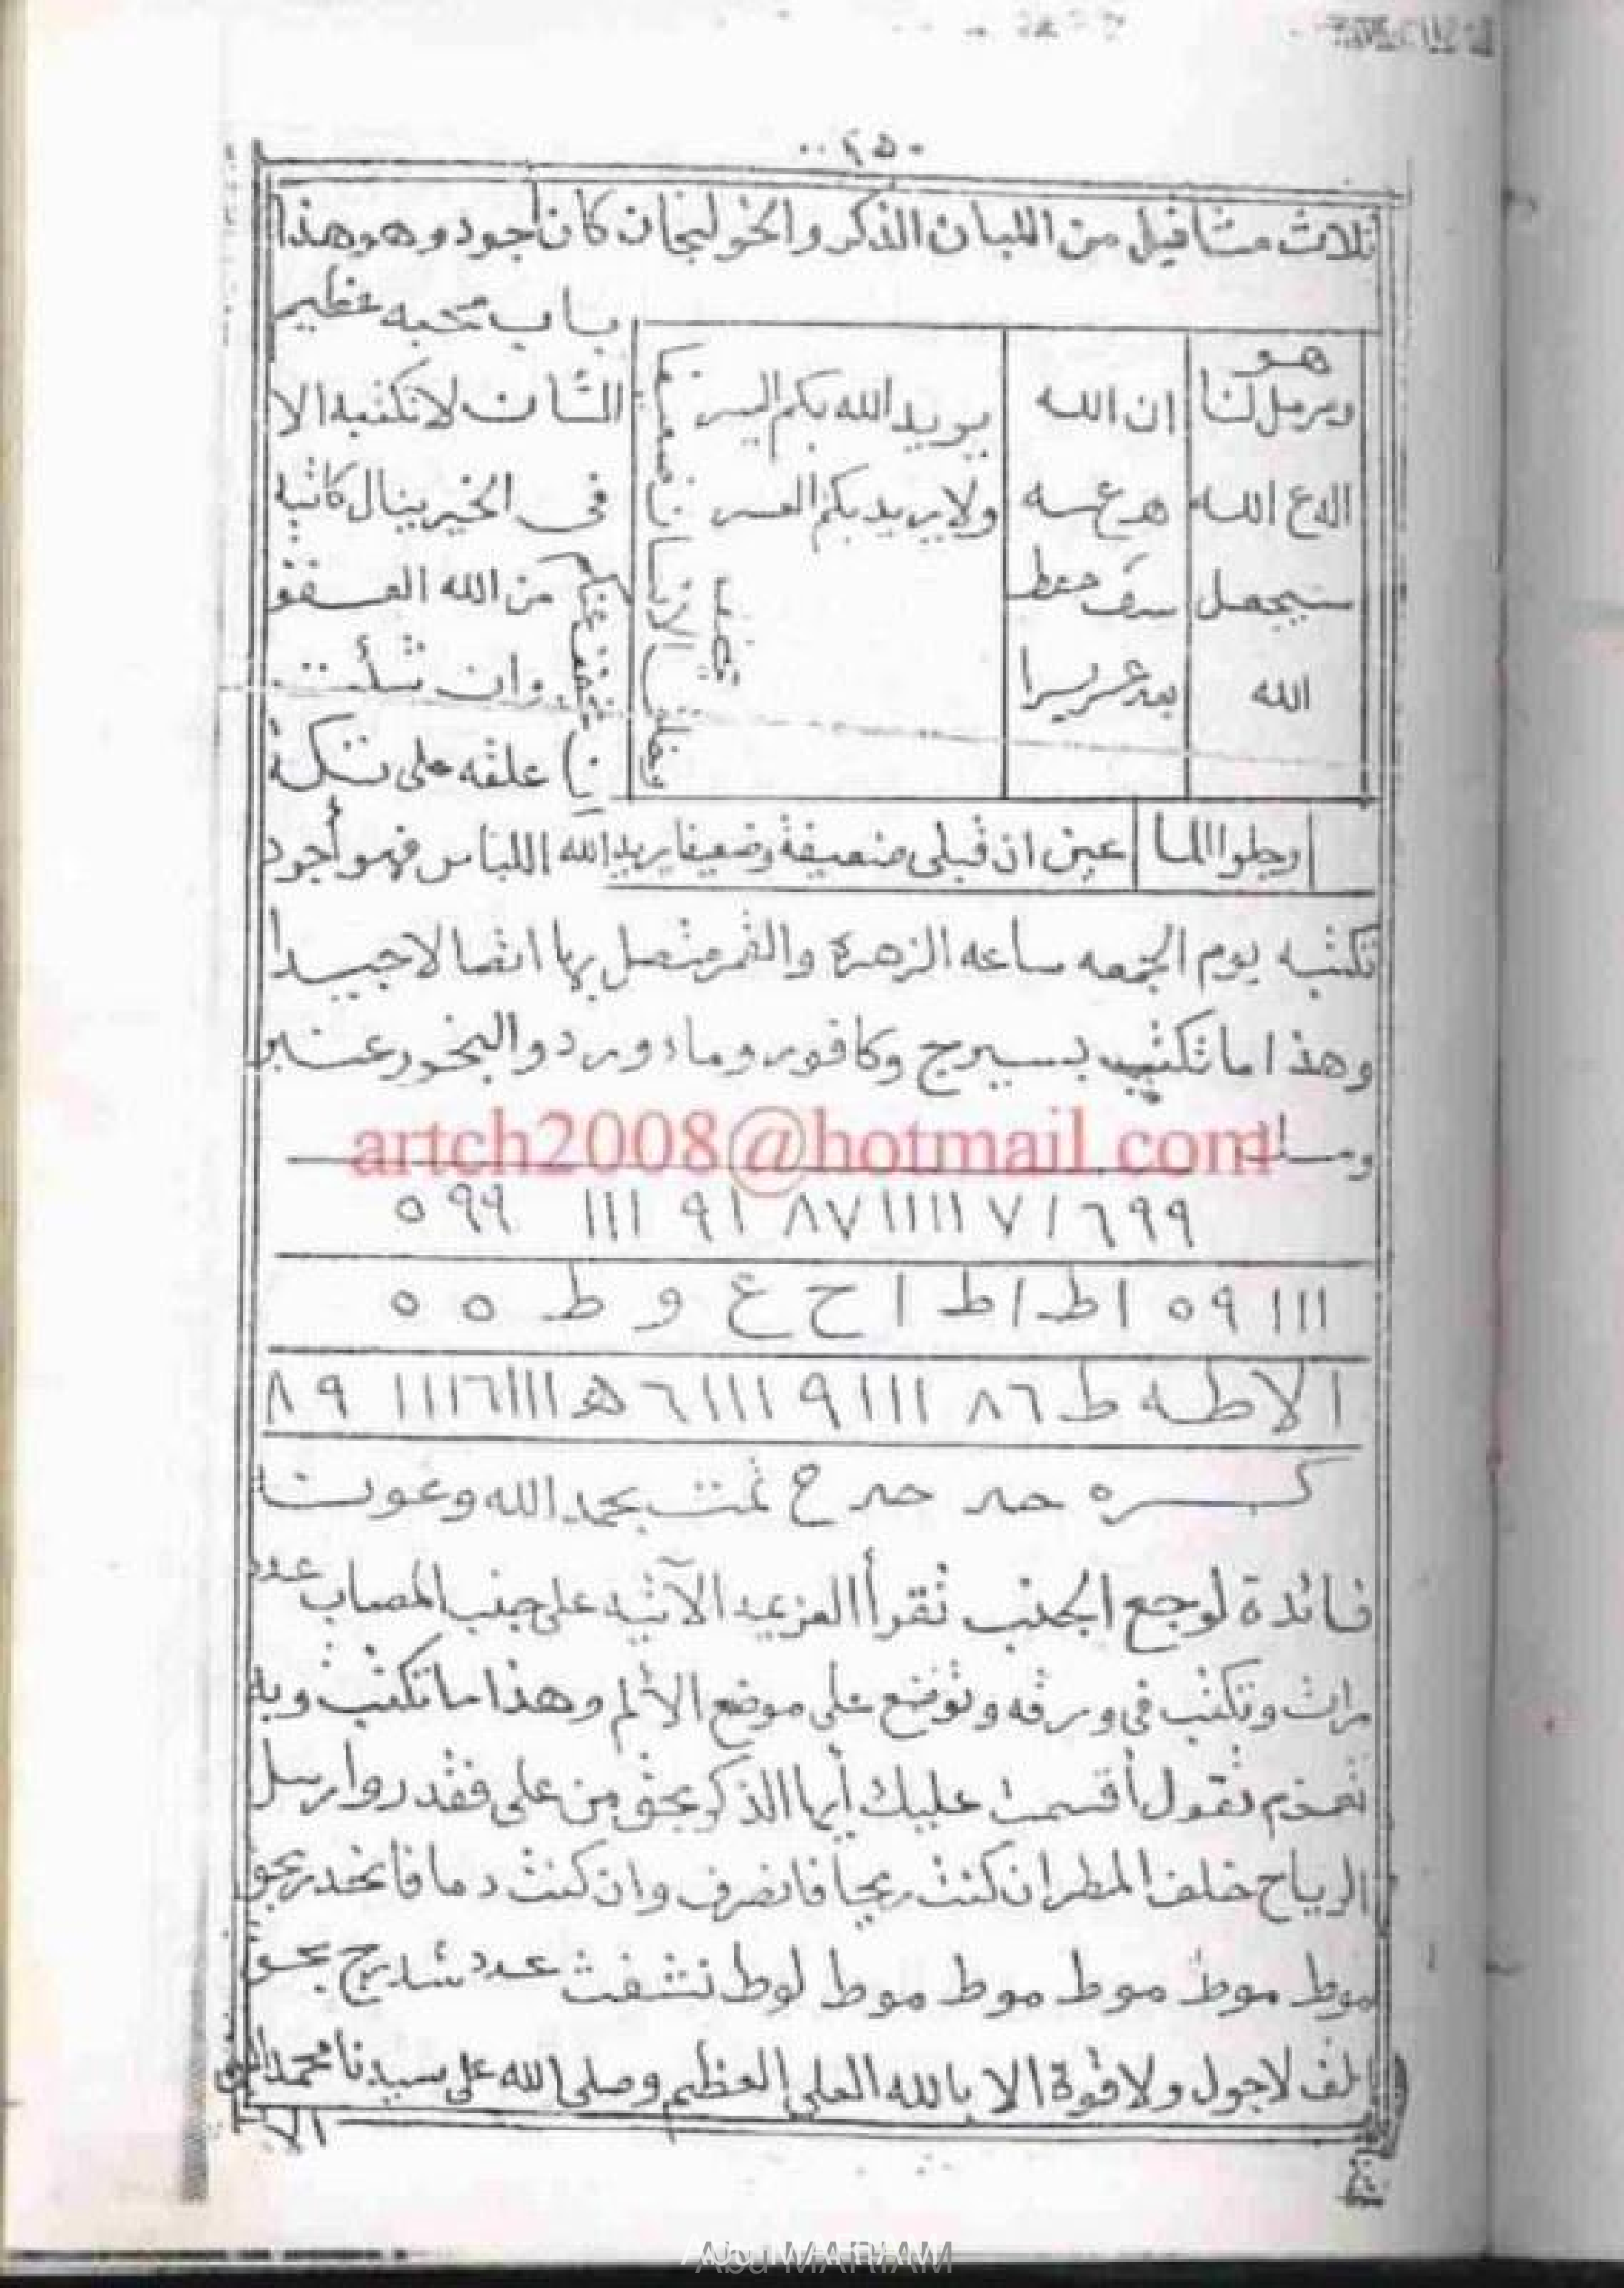 ٢٥٠
ثلاث مثاقيل من اللبان الذكر والخولنجان كان أجود وهو هذا
باب محبه عظيم
الشأن لا تكتبه الا
فى الخير ينال كاتبه
من الله العفو
وان شأت
علقه على تكة
هو
ان الله
يريد الله بكم اليسر
ولا يريد بكم العسر
الله
سيجعل
الله
اللباس فهو أجود
تكتبه يوم الجمعه ساعه الزهرة والقمر متصل بها اتصالا جيدا
وهذا ما تكتب بسيرج وكافور وماء ورد والبخور عنبر
artch2008@hotmail.com
٦٩٩ ١ ٧ ١١١١ ٨٧ ٩١ ١١١ ٥٩٩
١١١ ٩ ٥ ا ط ا ط ا ح ع و ط ٥ ٥
ط ٨٦ ١١١ ٩ ١١١ ٦ ھ ١١١٦١١١ ٨٩
تمت بحمد الله وعونه
فائدة لوجع الجنب تقرأ العزيمه الآتيه على جنب المصاب عدد
مرات وتكتب فى ورقه وتوضع على موضع الألم وهذا ما تكتب وبه
تعزم تقول أقسمت عليك أيها الذكر بحق من على فقدر وارسل
الرياح خلف المطر ان كنت ريحا فانصرف وان كنت دما فانحدر بحق
موط موط موط موط موط لوط نشفت عدد بحق
الف لاحول ولا قوة الا بالله العلى العظيم وصلى الله على سيدنا محمد
Abu MARIAM